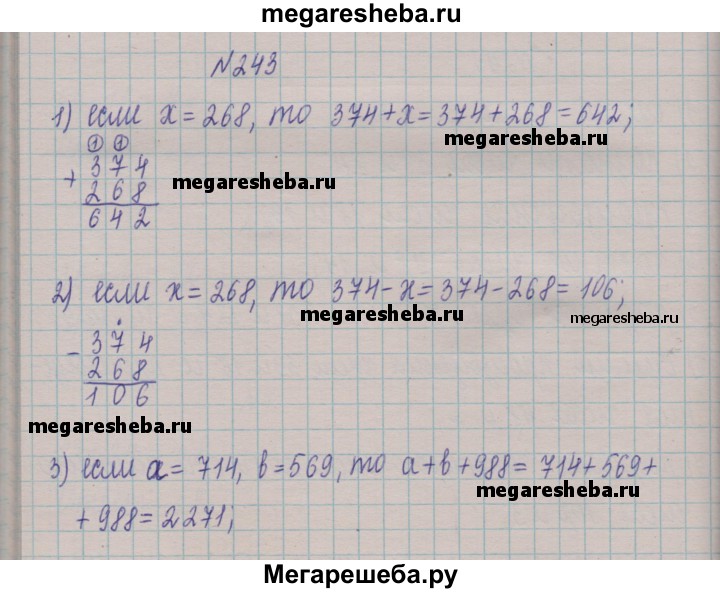 megaresheba.ru
№243
1) если x = 268, то 374+x = 374+268 = 642;
megaresheba.ru
1 1
+ 374
megaresheba.ru
268
642
2) если x = 268, то 374-x = 374-268 = 106;
megaresheba.ru
megaresheba.ru
- 374
268
106
megaresheba.ru
3) если a = 714, b = 569, то a+b+988 = 714+569+
megaresheba.ru
+988 = 2271;
Мегарешеба.ру